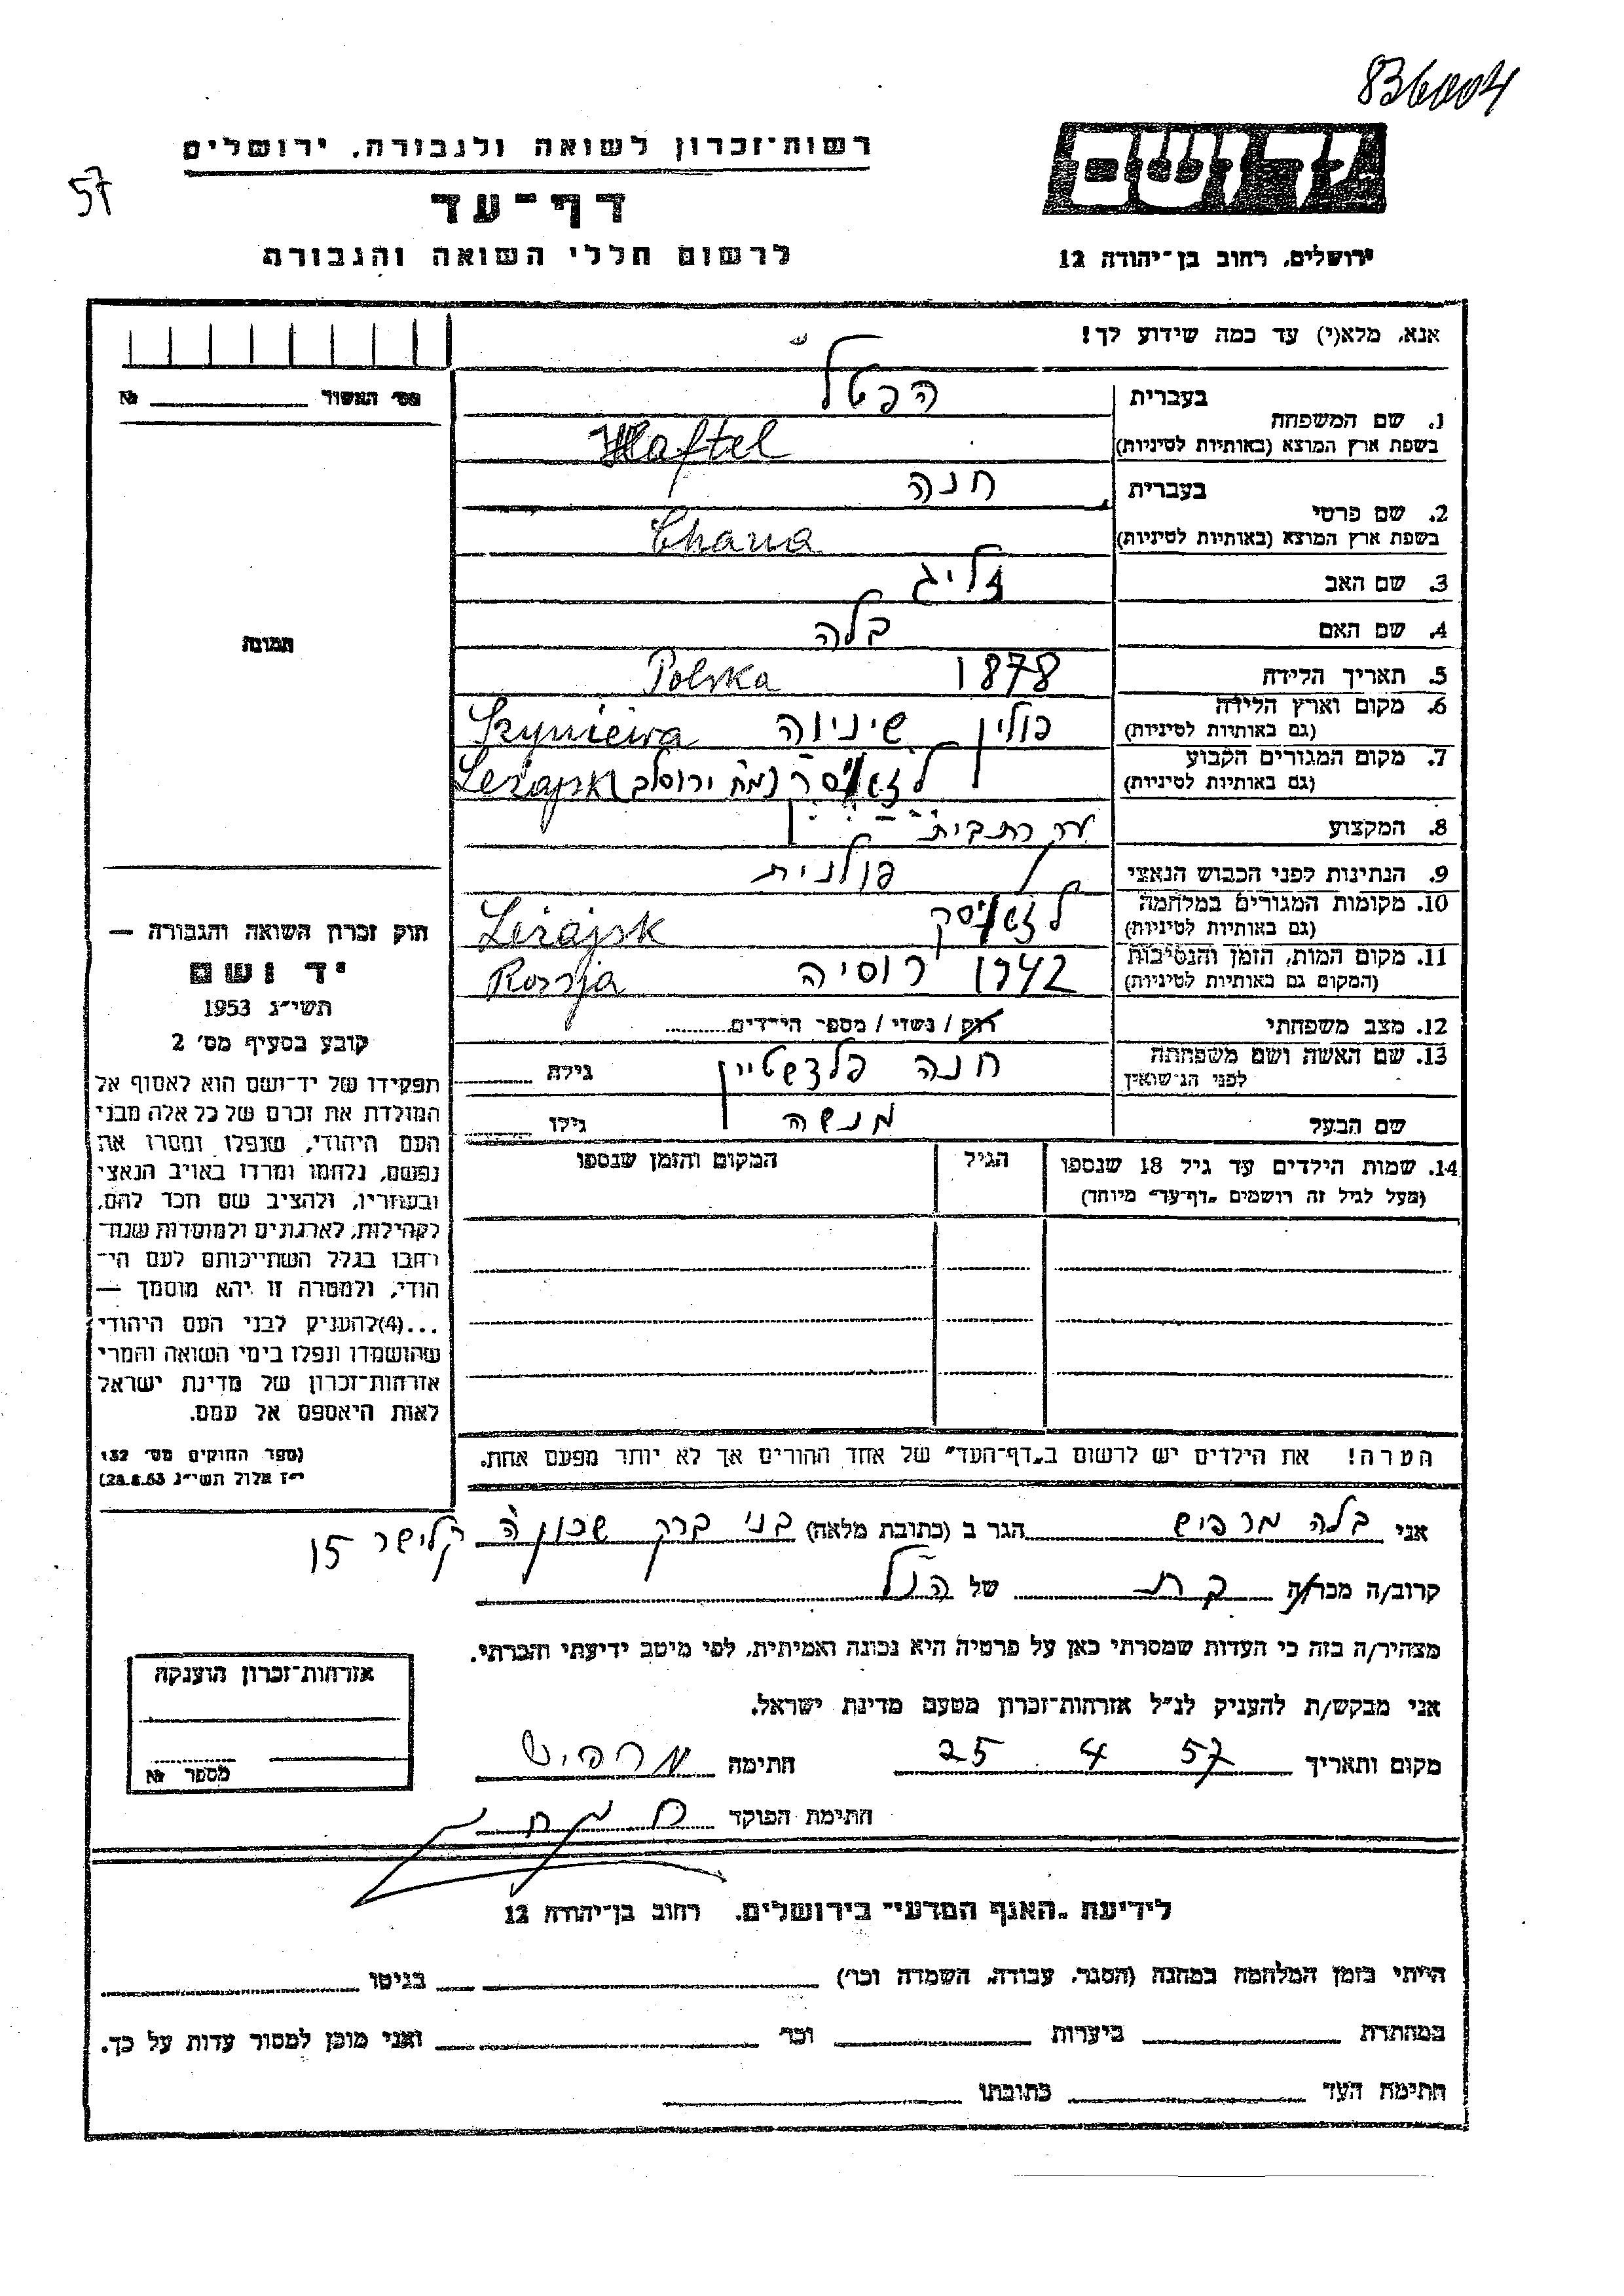 836004
רשות־זכרון לשואה ולגבורה, ירושלים
57
דף־עד
לרשום חללי השואה והגבורה
יד ושם
ירושלים, רחוב בן־יהודה 12
אנא, מלא(י) עד כמה שידוע לך!
מס׳ האשור № 
תמונה
1. שם המשפחה
בעברית הפטל
בשפת ארץ המוצא (באותיות לטיניות) Haftel
2. שם פרטי
בעברית חנה
בשפת ארץ המוצא (באותיות לטיניות) Chana
3. שם האב זליג
4. שם האם בלה
5. תאריך הלידה 1878 Polska
6. מקום וארץ הלידה (גם באותיות לטיניות) פולין שיניוה
7. מקום המגורים הקבוע (גם באותיות לטיניות) ירוסלב Leżajsk
8. המקצוע עקרת בית
9. הנתינות לפני הכבוש הנאצי פולנית
10. מקומות המגורים במלחמה (גם באותיות לטיניות) לזאיסק Leżajsk
11. מקום המות, הזמן והנסיבות (המקום גם באותיות לטיניות) 1942 רוסיה Rosja
12. מצב משפחתי רוק / נשוי / מספר הילדים
13. שם האשה ושם משפחתה לפני הנישואין חנה פלדשטיין גילה
שם הבעל מנשה גילו
14. שמות הילדים עד גיל 18 שנספו
(מעל לגיל זה רושמים „דף־עד״ מיוחד)
הגיל
המקום והזמן שנספו
הערה! את הילדים יש לרשום ב„דף־העד״ של אחד ההורים אך לא יותר מפעם אחת.
חוק זכרון השואה והגבורה —
יד ושם
תשי״ג 1953
קובע בסעיף מס׳ 2
תפקידו של יד־ושם הוא לאסוף אל
המולדת את זכרם של כל אלה מבני
העם היהודי, שנפלו ומסרו את
נפשם, נלחמו ומרדו באויב הנאצי
ובעוזריו, ולהציב שם וזכר להם,
לקהילות, לארגונים ולמוסדות שנח־
רבו בגלל השתייכותם לעם הי־
הודי, ולמטרה זו יהא מוסמך —
...(4)להעניק לבני העם היהודי
שהושמדו ונפלו בימי השואה והמרי
אזרחות־זכרון של מדינת ישראל
לאות היאספם אל עמם.
(ספר החוקים מס׳ 132
י״ז אלול תשי״ג 28.8.53)
אני בלה מרפיש הגר ב (כתובת מלאה) בני ברק שכון ה קלישר 15
קרוב/ה מכר/ה בת של הנ״ל
מצהיר/ה בזה כי העדות שמסרתי כאן על פרטיה היא נכונה ואמיתית, לפי מיטב ידיעתי והכרתי.
אני מבקש/ת להעניק לנ״ל אזרחות־זכרון מטעם מדינת ישראל.
מקום ותאריך 25 4 57 חתימה מרפיש
חתימת הפוקד
אזרחות־זכרון הוענקה
מספר №
לידיעת „האגף המדעי״ בירושלים, רחוב בן־יהודה 12
הייתי בזמן המלחמה במחנה (הסגר, עבודה, השמדה וכו׳) בגיטו
במחתרת ביערות וכו׳ ואני מוכן למסור עדות על כך.
חתימת העד כתובתו